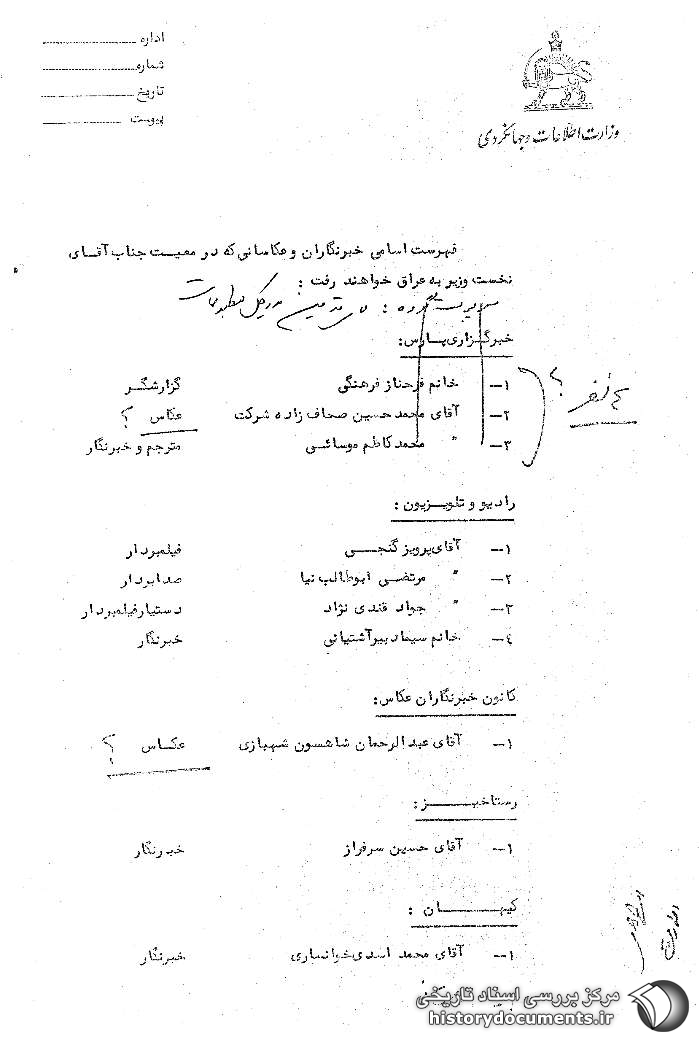 اداره
شماره
تاریخ
پیوست
وزارت اطلاعات و جهانگردی
فهرست اسامی خبرنگاران و عکاسانی که در معیت جناب آقای
نخست وزیر به عراق خواهند رفت :
سرپرست گروه : مدیر کل مطبوعات
خبرگزاری پارس:
۱— خانم فرحناز فرهنگی گزارشگر
۲— آقای محمد حسین صحاف زاده شرکت عکاس ؟
۳— " محمد کاظم موسائی مترجم و خبرنگار
نفر ؟
رادیو و تلویزیون :
۱— آقای پرویز گنجی فیلمبردار
۲— " مرتضی ابوطالب نیا صدابردار
۳— " جواد قندی نژاد دستیار فیلمبردار
۴— خانم سیما دبیرآشتیانی خبرنگار
کانون خبرنگاران عکاس:
۱— آقای عبدالرحمان شاهسون شهبازی عکاس ؟
رستاخیز :
۱— آقای حسین سرفراز خبرنگار
کیهان :
۱— آقای محمد اسدی خوانساری خبرنگار
مرکز بررسی اسناد تاریخی
historydocuments.ir